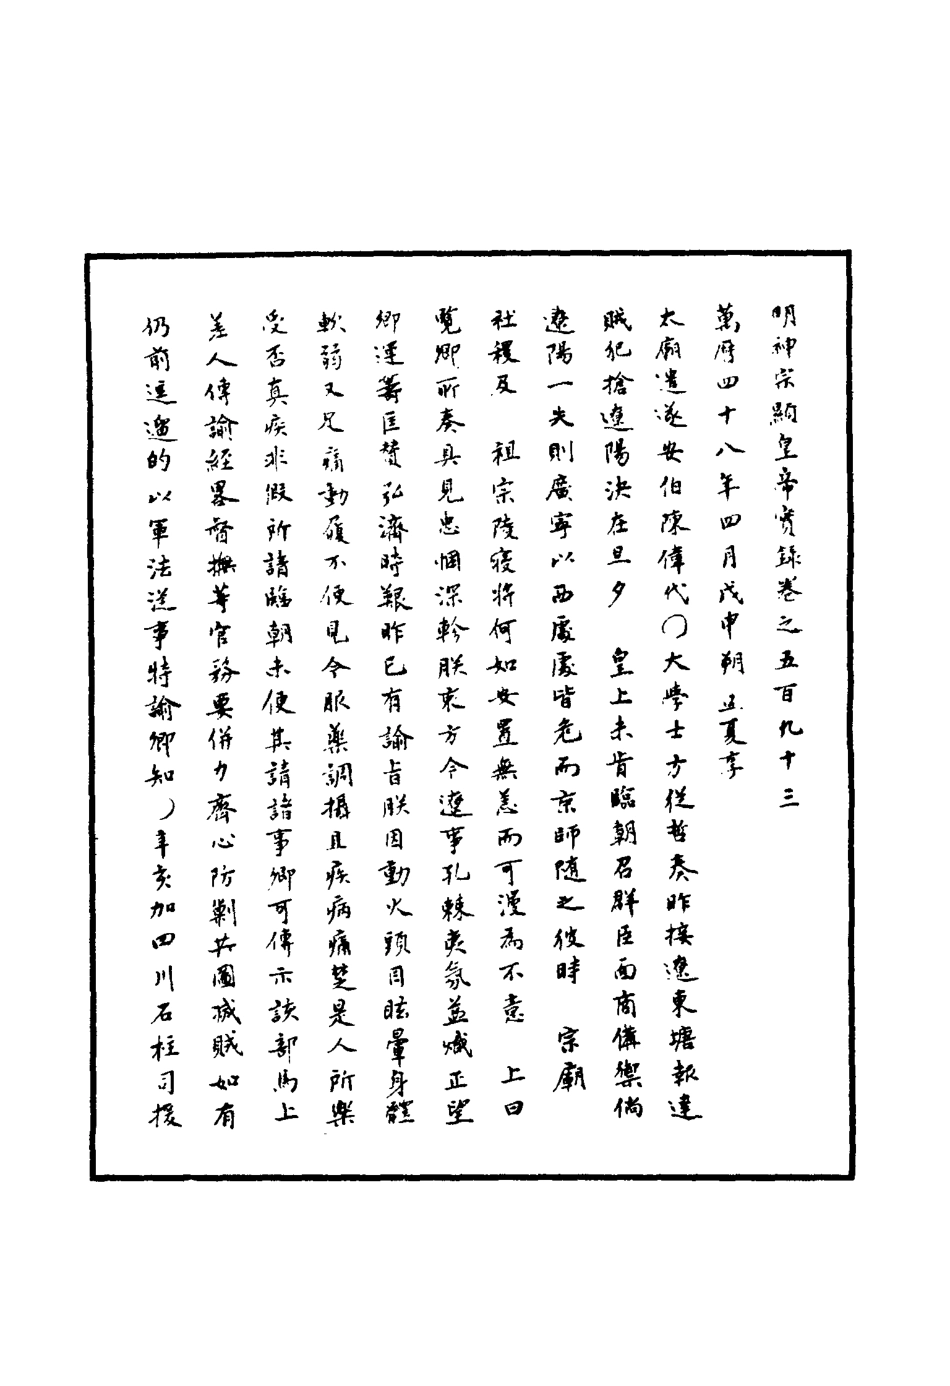 明神宗顯皇帝實錄卷之五百九十三
萬曆四十八年四月戊申朔孟夏享
太廟遣遂安伯陳偉代〇大學士方從哲奏昨接遼東塘報達
賊犯搶遼陽決在旦夕　皇上未肯臨朝召群臣面商備禦倘
遼陽一失則廣寧以西處處皆危而京師隨之彼時　宗廟
社稷及　祖宗陵寢將何如安置無恙而可漫為不意　上曰
覽卿所奏具見忠悃深軫朕衷方今遼事孔棘夷氛益熾正望
卿運籌匡贊弘濟時艱昨已有諭旨朕因動火頭目眩暈身體
軟弱又足痛動履不便見今服藥調攝且疾病痛楚是人所樂
受否真疾非假所請臨朝未便其請諸事卿可傳示該部馬上
差人傳諭經畧督撫等官務要併力齊心防剿共圖滅賊如有
仍前逗遛的以軍法從事特諭卿知〇辛亥加四川石柱司援